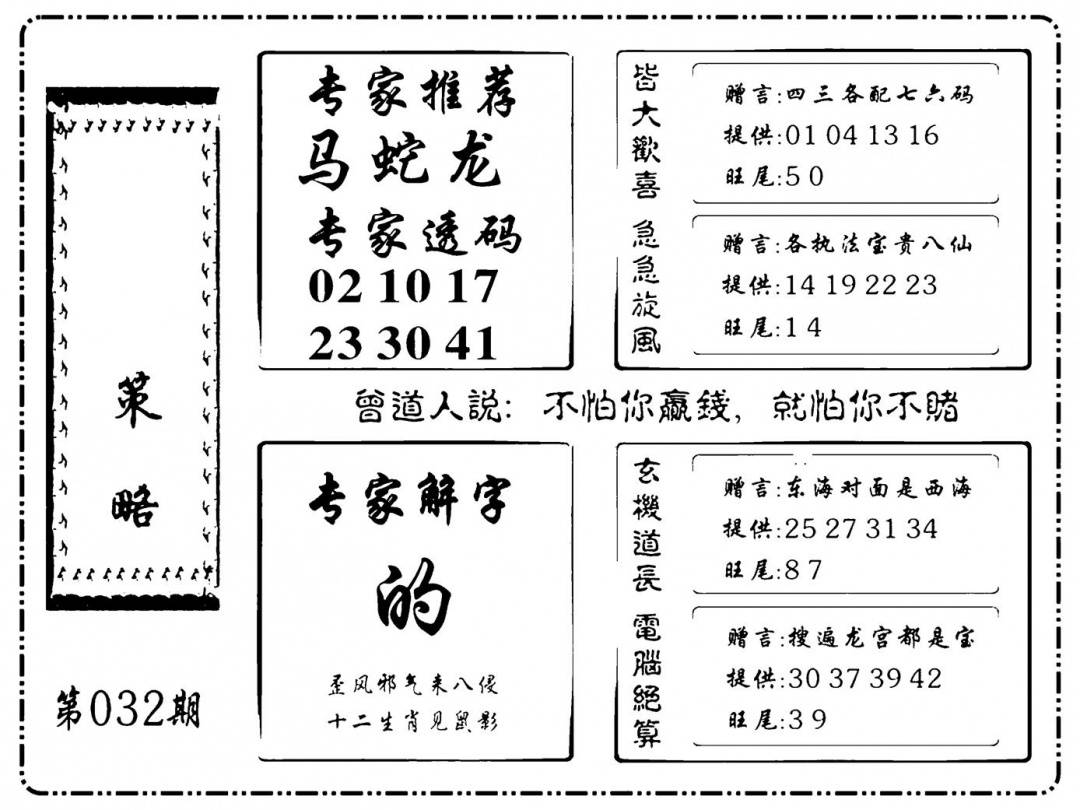 策略
第032期
专家推荐
马蛇龙
专家透码
02 10 17
23 30 41
皆大歡喜
赠言:四三各配七六码
提供:01 04 13 16
旺尾:5 0
急急旋風
赠言:各执法宝贵八仙
提供:14 19 22 23
旺尾:1 4
曾道人説: 不怕你贏錢, 就怕你不賭
专家解字
的
歪风邪气来八侵
十二生肖见鼠影
玄機道長
赠言:东海对面是西海
提供:25 27 31 34
旺尾:8 7
電腦絕算
赠言:搜遍龙宫都是宝
提供:30 37 39 42
旺尾:3 9